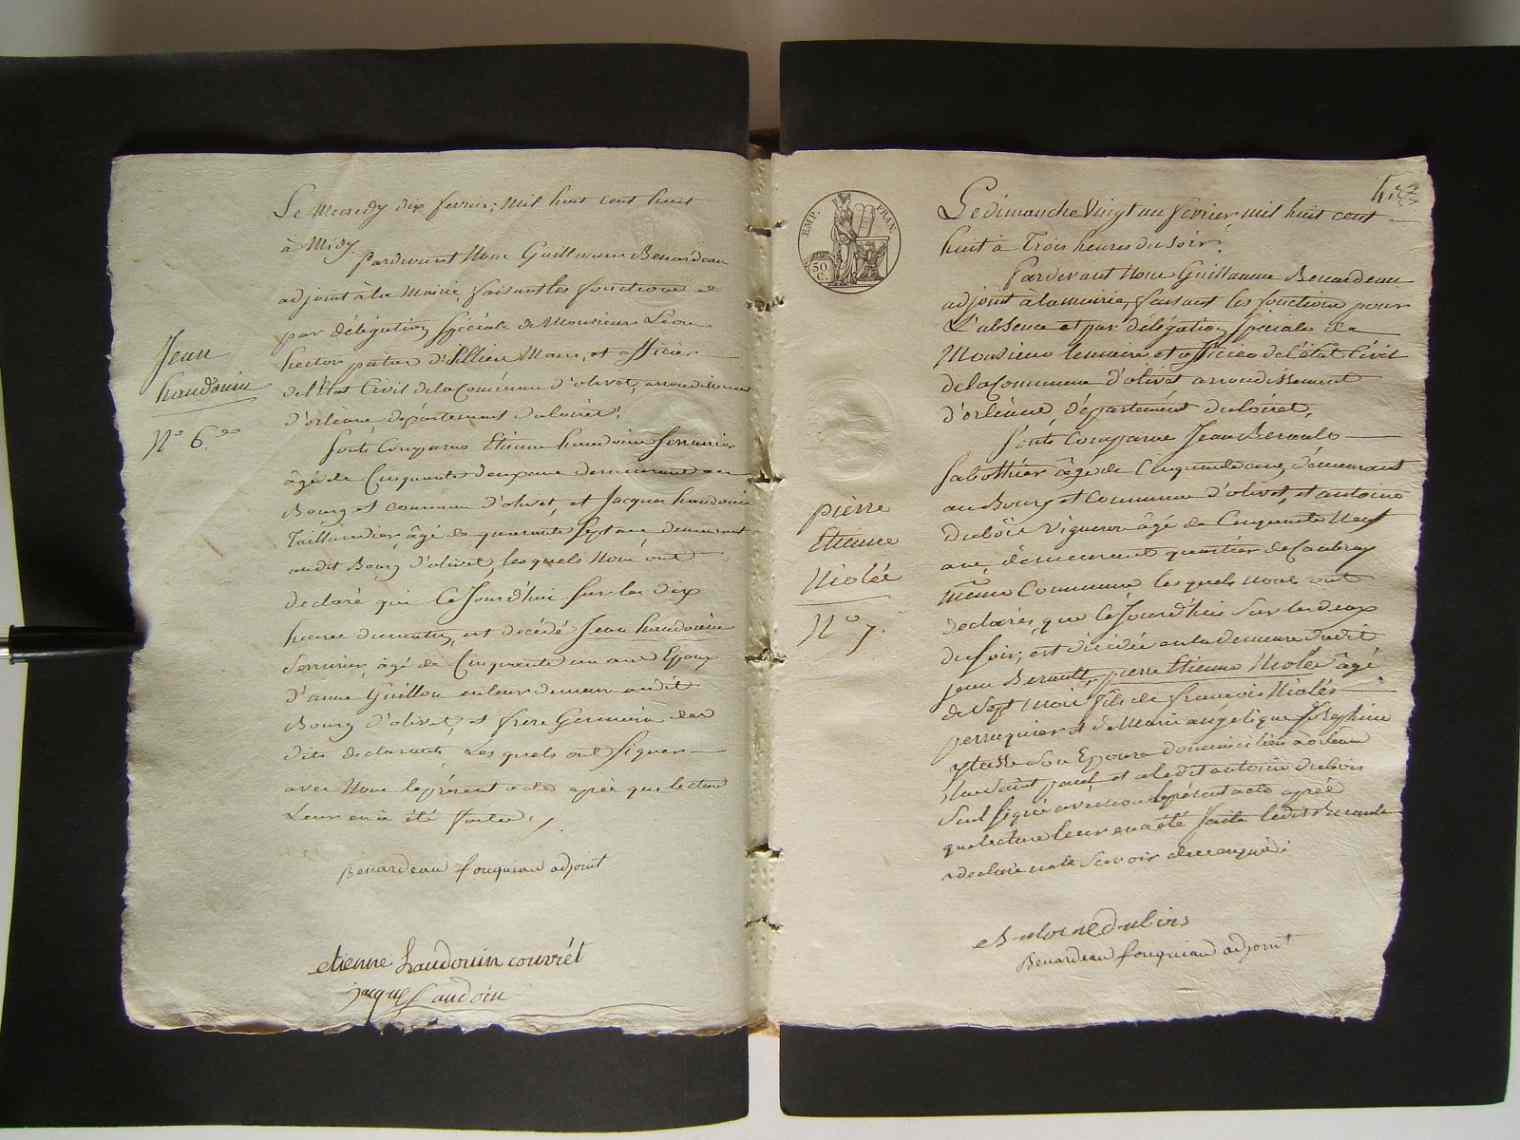 Le Mercredy dix fevrier mil huit cent huit
à Midy
Pardevant Nous Guillaume Benardeau
adjoint à la Mairie, faisant les fonctions et
par délégation spéciale de Monsieur Léon
hector patas d'Illiers Maire, et officier
de l'état Civil de la Commune d'olivet, arrondissement
d'orléans département du loiret,
Jean
haudouin
N° 6.
Sont Comparus Etienne haudouin serrurier
âgé de Cinquante deux ans demeurant au
Bourg et commune d'olivet, et Jacques haudouin
Taillandier, âgé de quarante sept ans demeurant
audit Bourg d'olivet, lesquels Nous ont
declaré que Ce Jourd'hui sur les dix
heures du matin, est décédé Jean haudouin
Serrurier, âgé de Cinquante un ans Epoux
d'anne Guillon en leur demeure audit
Bourg d'olivet, et frere Germain des
dits declarants, Lesquels ont signer
avec Nous le présent acte après que lecture
Leur en a été faite.
Benardeau fouqueau adjoint
etienne haudouin couvrét
jacque haudoin
EMP. FRAN.
50
C.
4
Le dimanche Vingt un fevrier mil huit cent
huit à Trois heures du soir.
Pardevant Nous Guillaume Benardeau
adjoint à la mairie, faisant les fonctions pour
L'absence et par délégation spéciale de
Monsieur le maire et officier de l'état Civil
de la Commune d'olivet arrondissement
d'orléans, département du loiret,
pierre
Etienne
Niolée
N° 7.
Sont Comparus Jean Berault
Sabothier âgé de Cinquante cinq demeurant
au Bourg et commune d'olivet, et antoine
Dubois Vigneron âgé de Cinquante Neuf
ans, demeurant quartier de Caubray
même Commune lesquels nous ont
declarés que Ce Jourd'hui sur les deux
du soir, est décédée en la demeure dudit
jean Berault, pierre Etienne Niolée âgé
de Sept mois fils de françois Niolée
perruquier et de Marie angelique Josephine
son Epouse domiciliés à orleans
Rue Saint paul et a ledit antoine dubois
Seul signé avec nous le présent acte après
que lecture leur en a été faite ledit Berault
a declaré ne le Savoir de ce enquis
Antoine Dubois
Benardeau fouqueau adjoint